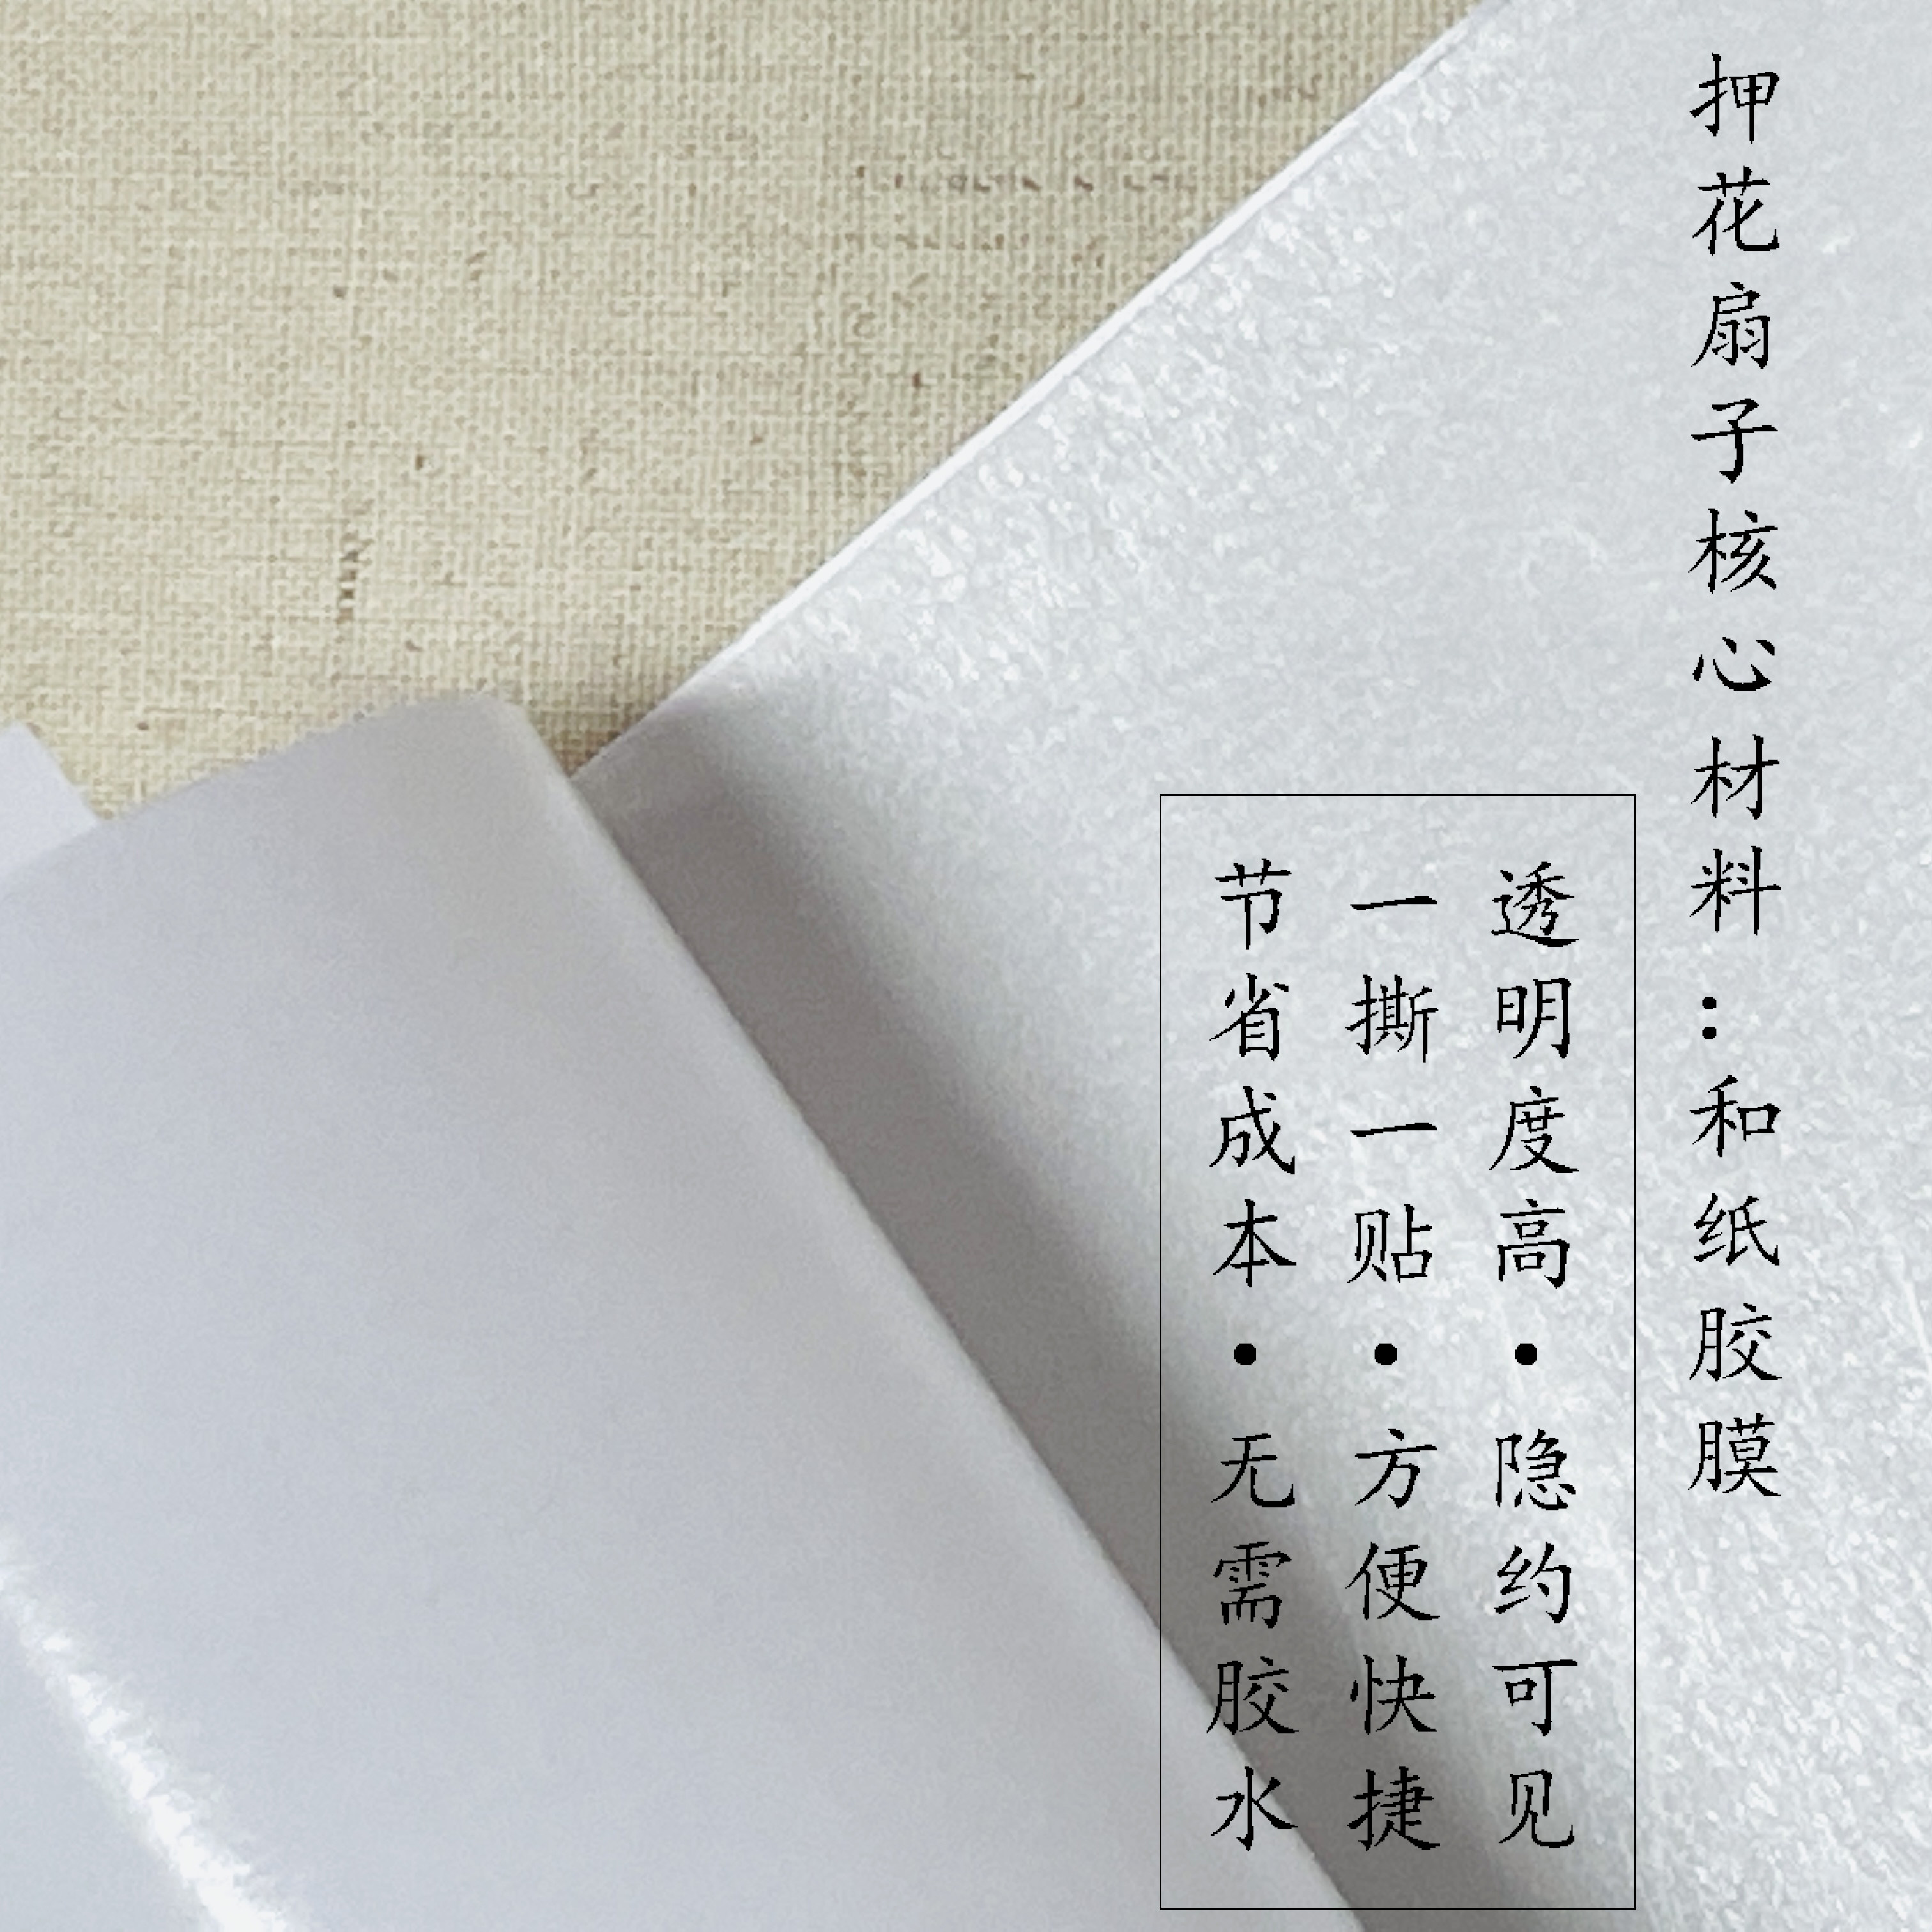 押花扇子核心材料：和纸胶膜
透明度高·隐约可见
一撕一贴·方便快捷
节省成本·无需胶水